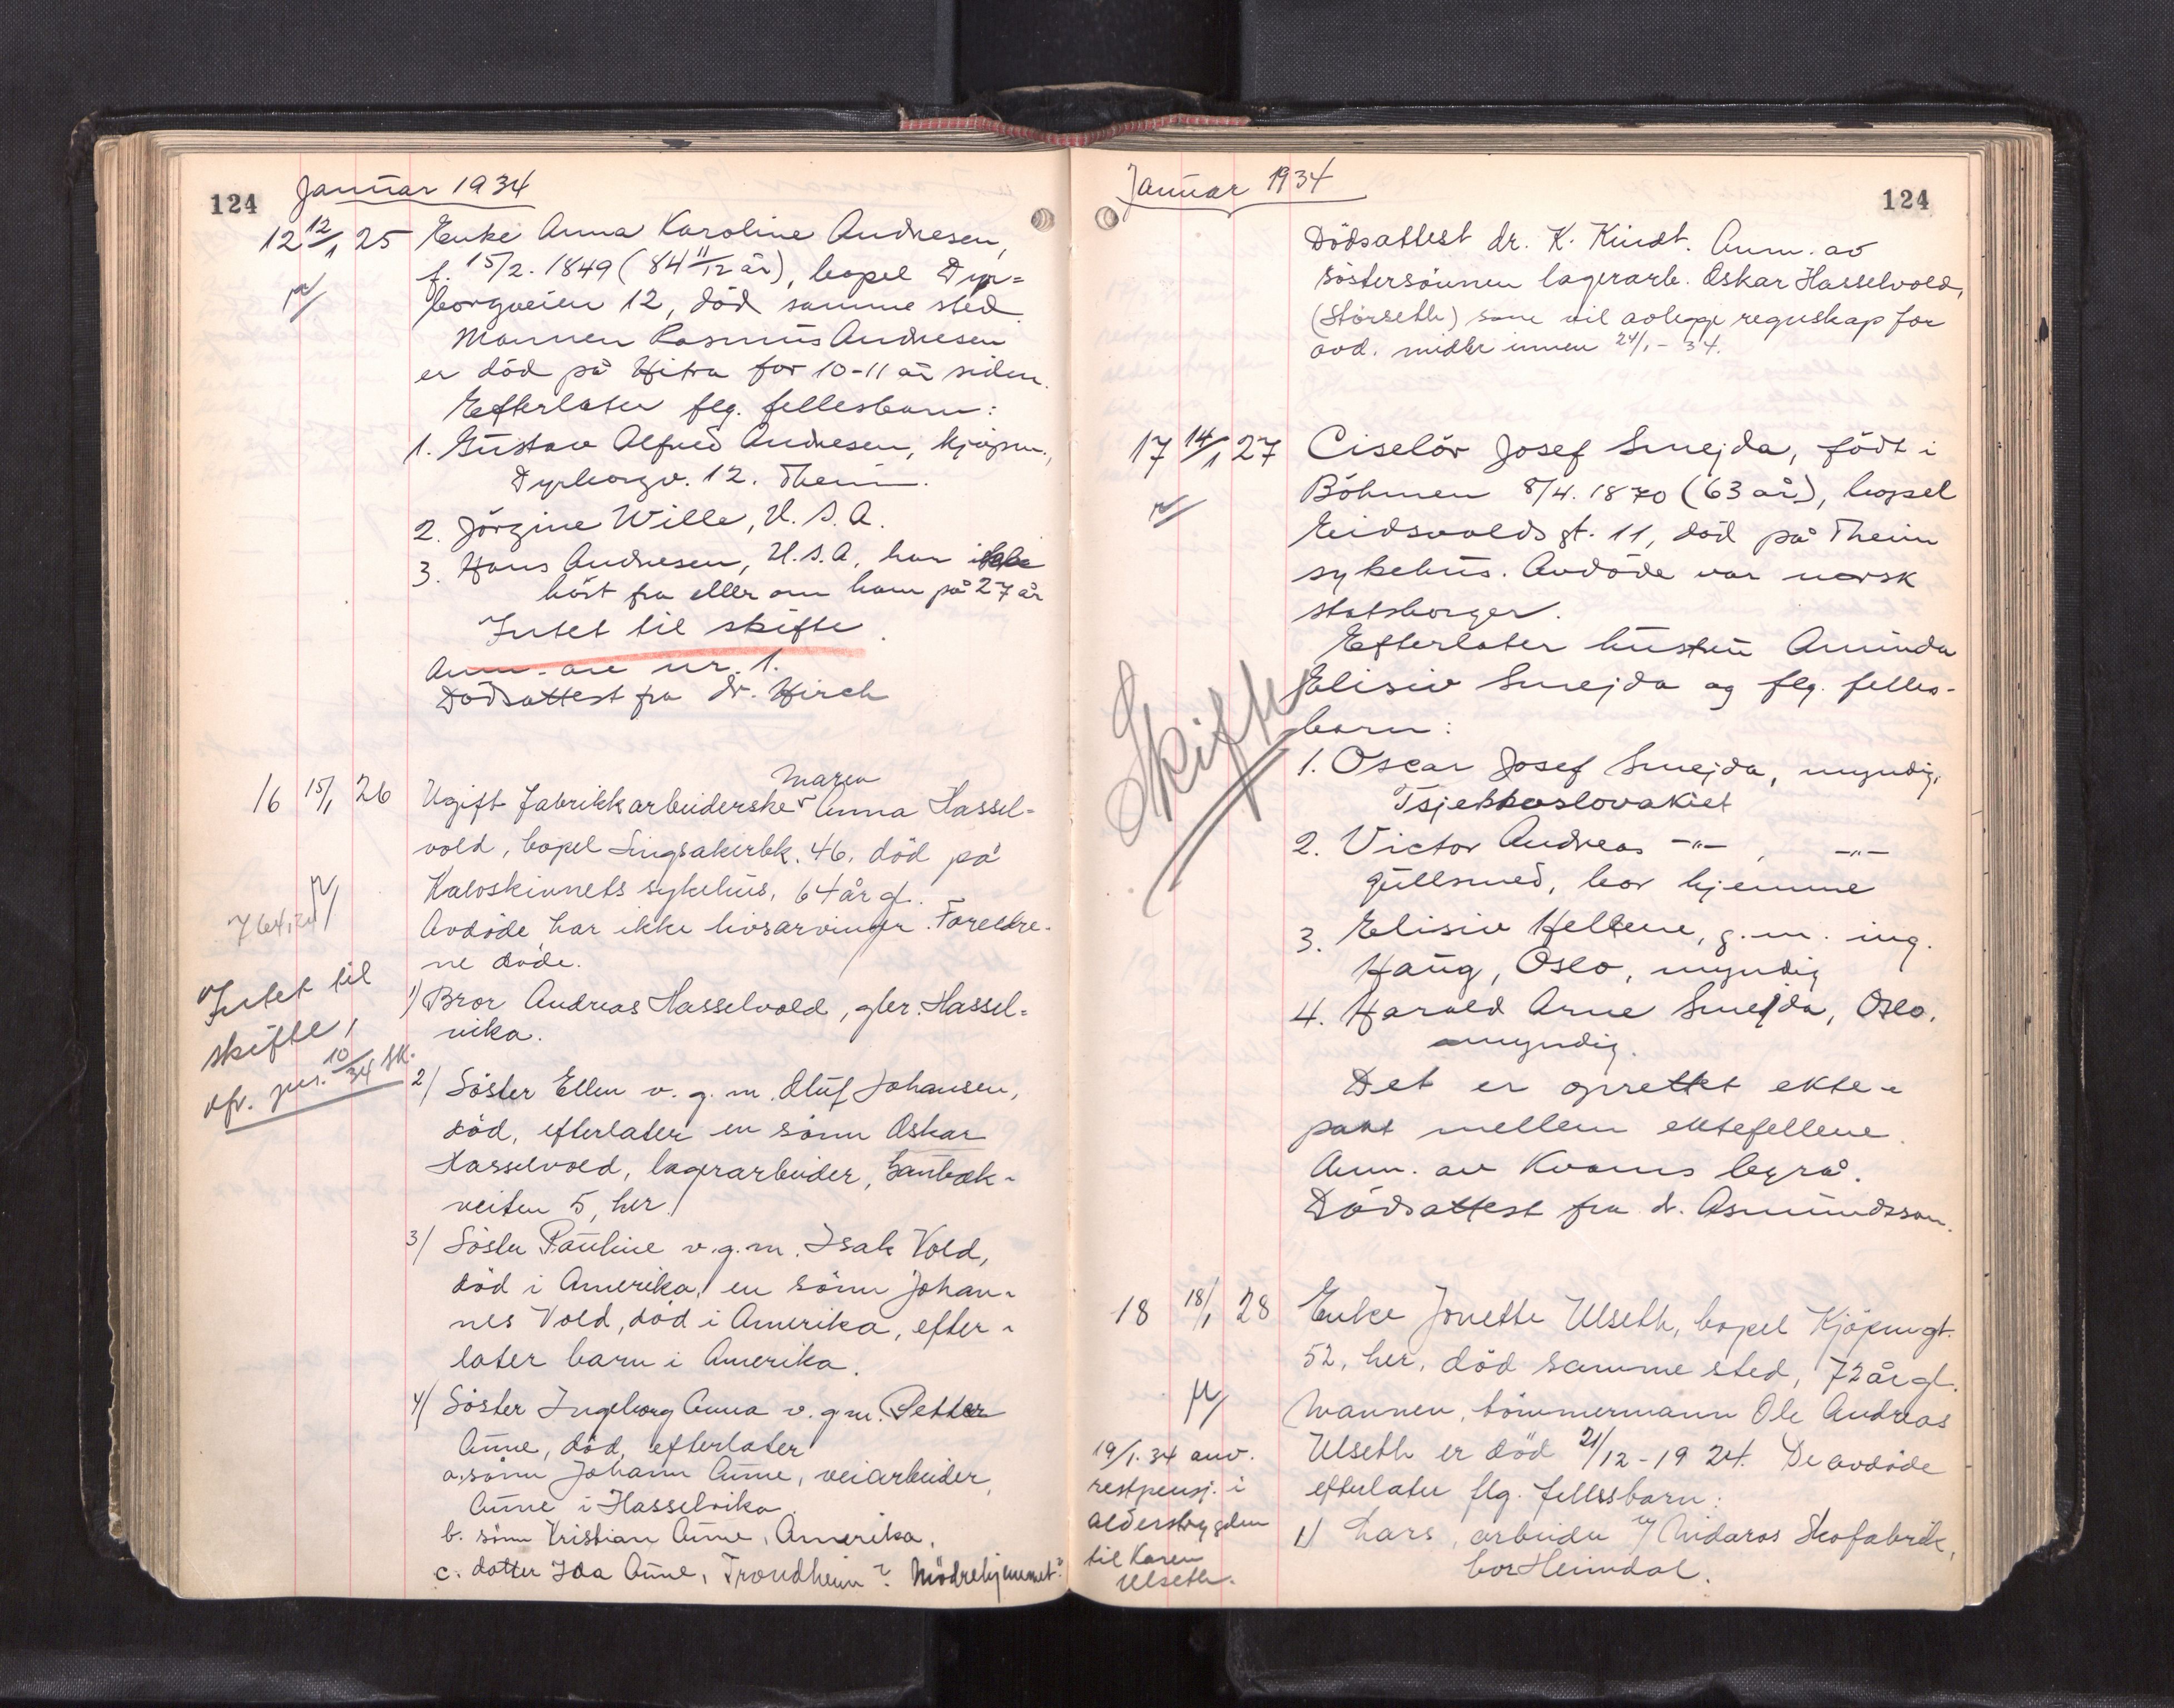 124
Januar 1934
12 12/1 25 Enke Anna Karoline Andresen,
f. 15/2. 1849 (84 11/12 år), bopel Dyr=
borgveien 12, död samme sted.
Mannen Rasmus Andresen
er död på Hitra for 10-11 år siden.
Efterlater flg. fellesbarn:
1. Gustav Alfred Andresen, kjöpm.,
Dyrborgv. 12. Theim.
2. Jörgine Wille, U.S.A.
3. Hans Andresen, U.S.A, har ikke
hört fra eller om ham på 27 år
Intet til skifte.
Anm. av nr. 1.
Dödsattest fra dr. Hirch
16 15/1 26 Ugift fabrikkarbeiderske Maren Anna Hassel=
vold, bopel Singsakerbk. 46, död på
Kalvskinnets sykehus, 64 år gl.
Avdöde har ikke livsarvinger. Foreldre-
ne döde.
764,20
Intet til
skifte,
cfr. jur. 10/34 SK.
1) Bror Andreas Hasselvold, gbr. Hassel=
vika.
2) Söster Ellen v. g. m. Oluf Johansen,
död, efterlater en sönn Oskar
Hasselvold, lagerarbeider, Saubæk-
veiten 5, her.
3) Söster Pauline v.g.m. Isak Vold,
död i Amerika, en sönn Johan-
nes Vold, död i Amerika, efter-
later barn i Amerika.
4) Söster Ingeborg Anna v. g m. Petter
Aune, död, efterlater
a. sönn Johann Aune, veiarbeider,
Aune i Hasselvika.
b. sönn Kristian Aune, Amerika.
c. datter Ida Aune, Trondheim? Mödrehjemmet?
Januar 1934
124
Dödsattest dr. K. Kindt. Anm. av
söstersönnen lagerarb. Oskar Hasselvold,
(Störseth) som vil avlegge regnskap for
avd. midler innen 24/1 - 34.
17 14/1 27 Ciselör Josef Smejda, födt i
Böhmen 8/4. 1870 (63 år), bopel
Eidsvolds gt. 11, död på Theim
sykehus. Avdöde var norsk
statsborger.
Efterlater hustru Aminda
Elisiv Smejda og flg. felles-
barn:
Skifte
1. Oscar Josef Smejda, myndig,
Tsjekkoslovakiet
2. Victor Andreas -"-, -"-
gullsmed, bor hjemme
3. Elisiv Hellene, g.m. ing.
Haug, Oslo, myndig
4. Harald Arne Smejda, Oslo,
myndig.
Det er oprettet ekte-
pakt mellem ektefellene.
Anm. av Kvams byrå.
Dödsattest fra dr. Asmundsson.
18 18/1 28 Enke Jonette Ulseth, bopel Kjöpmgt.
52, her, död samme sted, 72 år gl.
Mannen, tömmermann Ole Andreas
Ulseth er död 21/12 - 1924. De avdöde
efterlater flg. fellesbarn:
1) Lars, arbeider v/ Nidaros Skofabrik,
bor Heimdal.
19/1.34 anv.
restpensj. i
alderstrygden
til Karen
Ulseth.